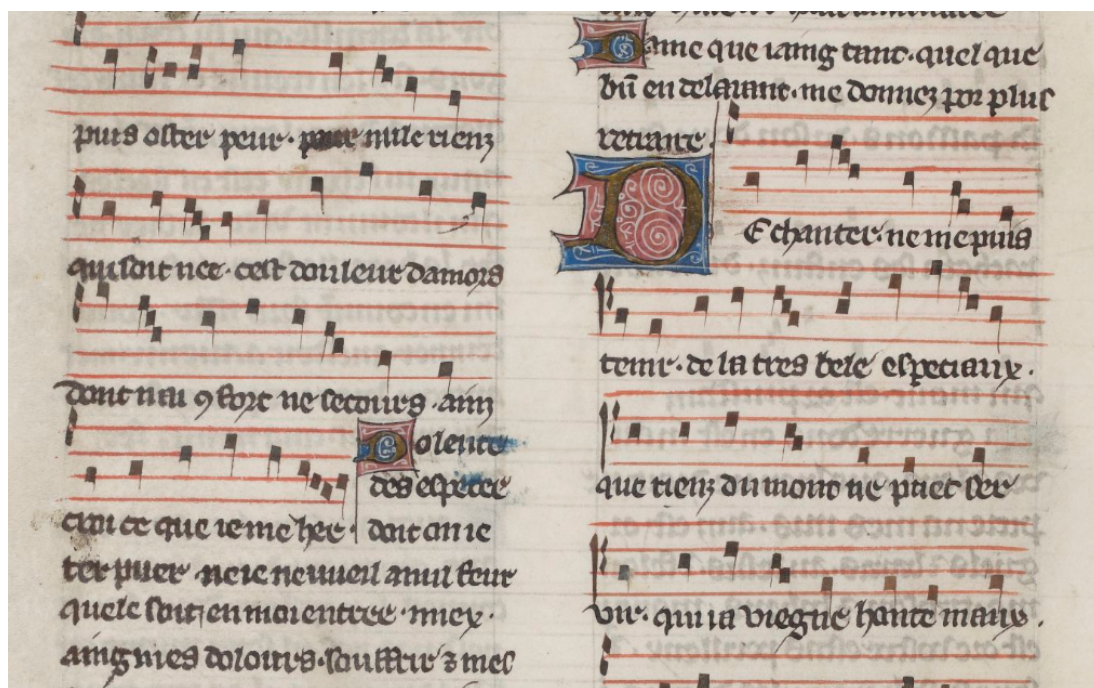 puis oster peur. nule rienz
qui soit nee. cest douleur damors
dont nai 9fort ne secours. ainz
Dolente
desesperee
croi ce que ie me hee. dont on ie
ter puer. ne ie ne vueil a nul feur
quele soit en moi entree. miex.
aing mes dolours. souffrir ⁊ mes
Dame que iaing tant. quel que
bn̄ en delaiant. me donnez por plus
retraire.
DE chanter. ne me puis
tenir. de la tres bele especiaux.
que rienz du mont ne puet ser
vir. qui ia viegne honte maux.